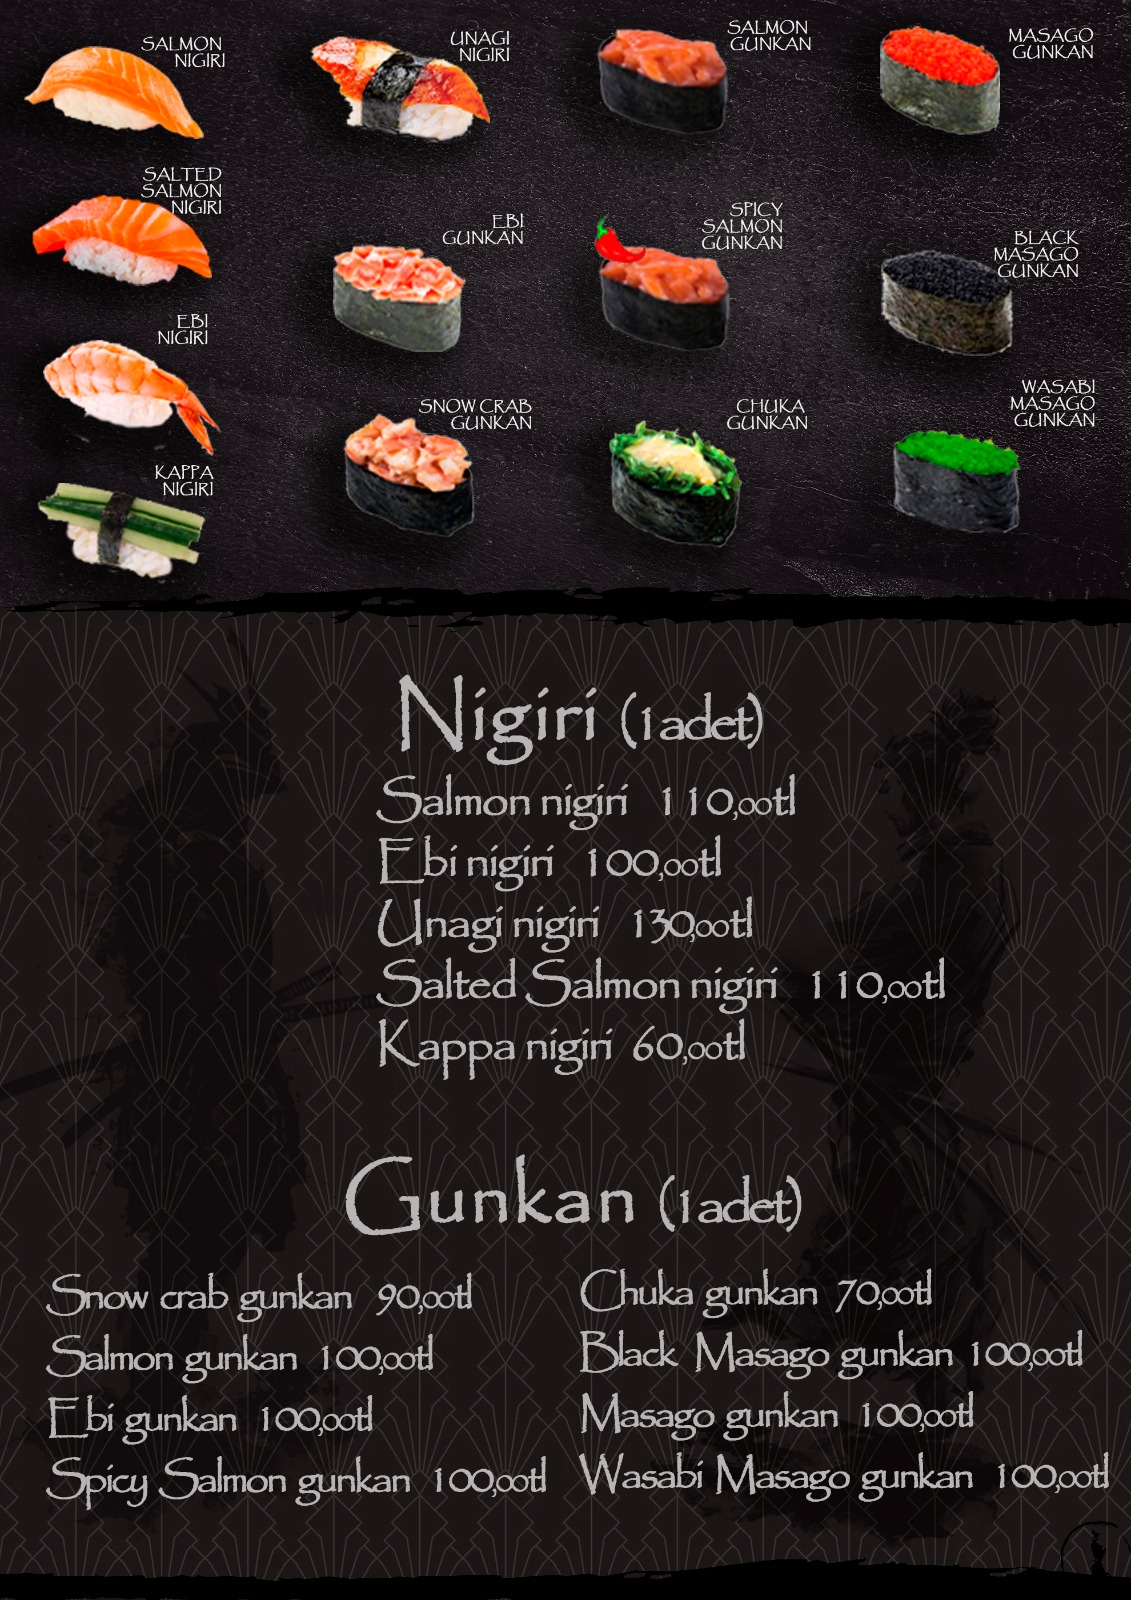 SALMON
NIGIRI
UNAGI
NIGIRI
SALMON
GUNKAN
MASAGO
GUNKAN
SALTED
SALMON
NIGIRI
EBI
GUNKAN
SPICY
SALMON
GUNKAN
BLACK
MASAGO
GUNKAN
EBI
NIGIRI
SNOW CRAB
GUNKAN
CHUKA
GUNKAN
WASABI
MASAGO
GUNKAN
KAPPA
NIGIRI
Nigiri (1adet)
Salmon nigiri 110,00tl
Ebi nigiri 100,00tl
Unagi nigiri 130,00tl
Salted Salmon nigiri 110,00tl
Kappa nigiri 60,00tl
Gunkan (1adet)
Snow crab gunkan 90,00tl
Salmon gunkan 100,00tl
Ebi gunkan 100,00tl
Spicy Salmon gunkan 100,00tl
Chuka gunkan 70,00tl
Black Masago gunkan 100,00tl
Masago gunkan 100,00tl
Wasabi Masago gunkan 100,00tl